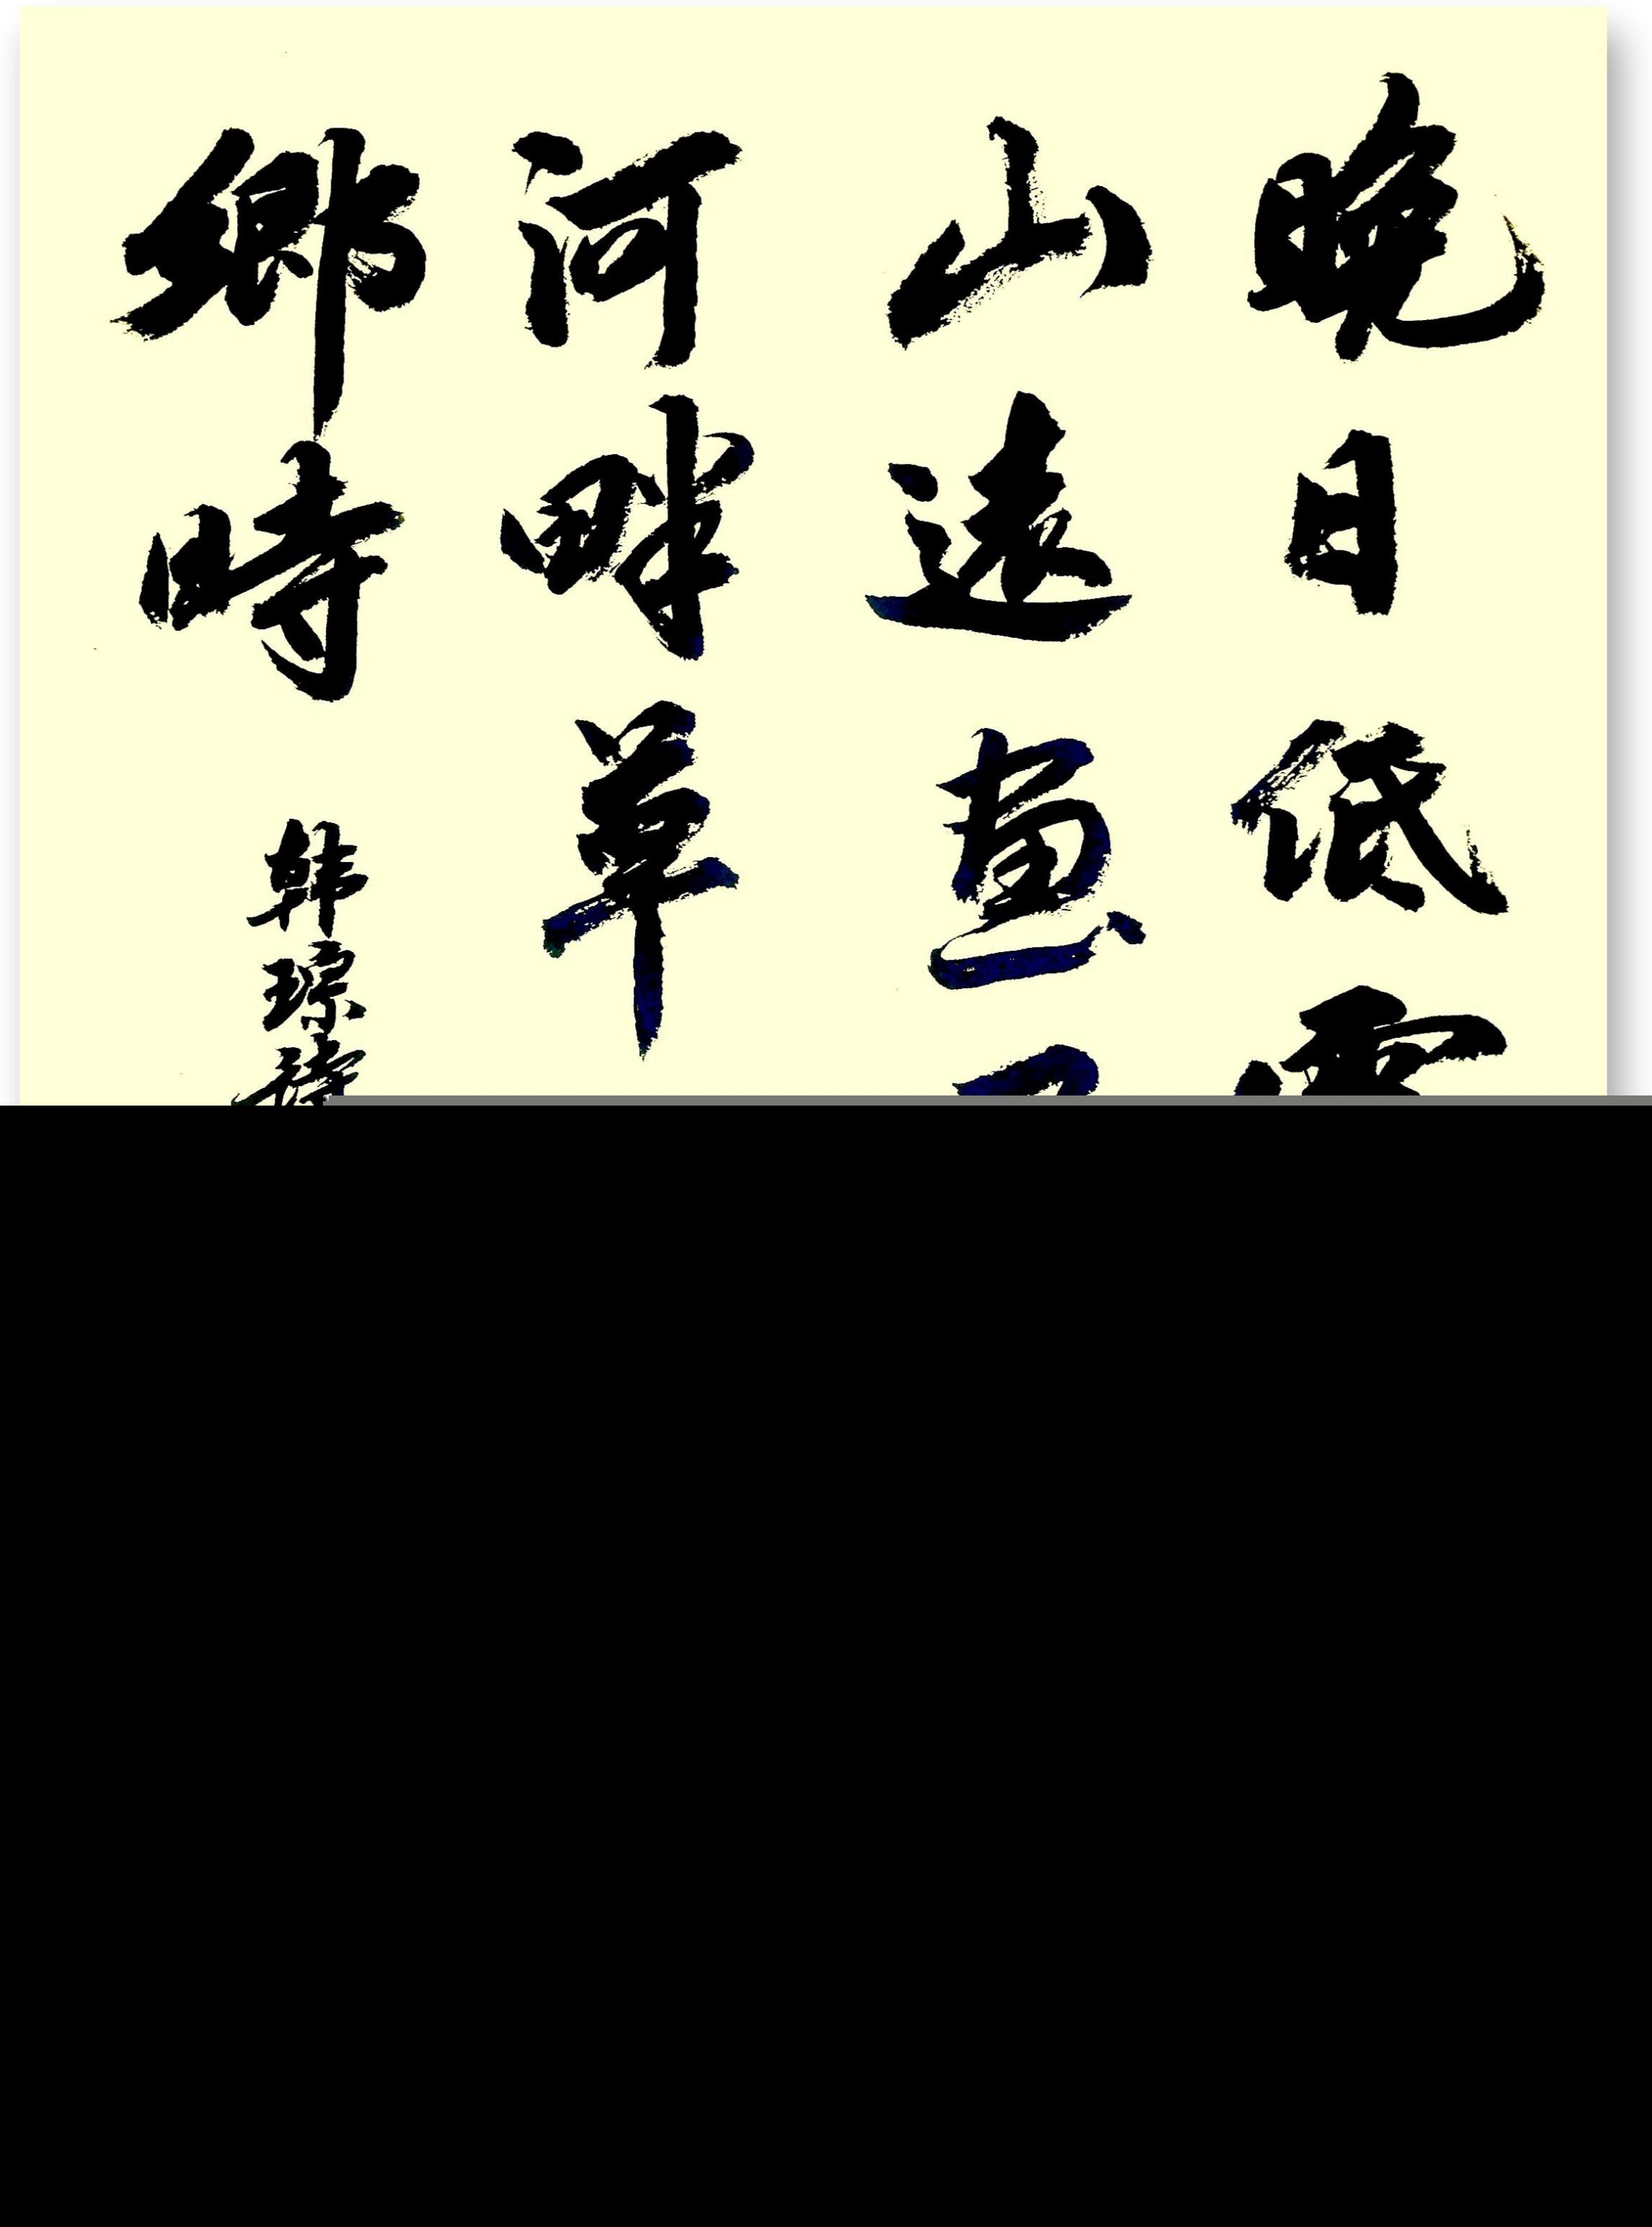 晚日低
山遠畫
河畔草
鄉時
韩琮